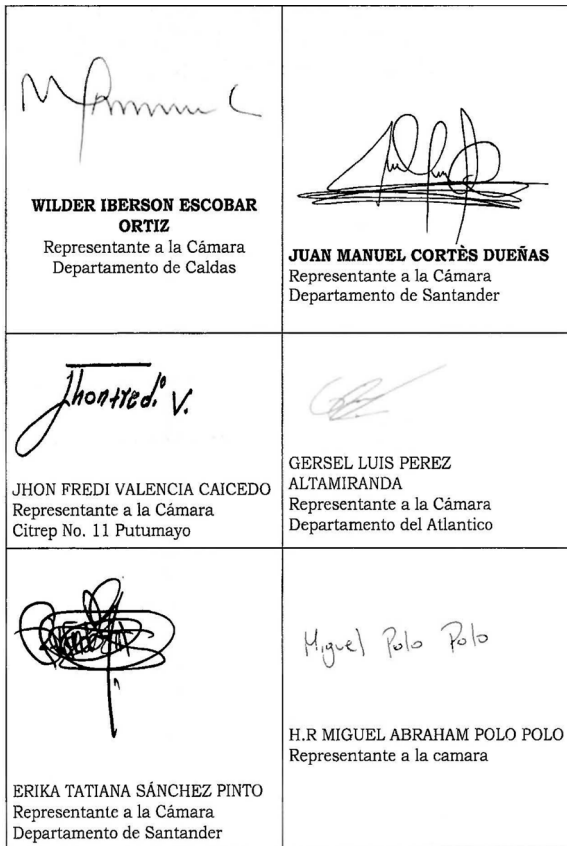 WILDER IBERSON ESCOBAR
ORTIZ
Representante a la Cámara
Departamento de Caldas
JUAN MANUEL CORTÈS DUEÑAS
Representante a la Cámara
Departamento de Santander
Jhonfredi V.
JHON FREDI VALENCIA CAICEDO
Representante a la Cámara
Citrep No. 11 Putumayo
GERSEL LUIS PEREZ
ALTAMIRANDA
Representante a la Cámara
Departamento del Atlantico
ERIKA TATIANA SÁNCHEZ PINTO
Representante a la Cámara
Departamento de Santander
Miguel Polo Polo
H.R MIGUEL ABRAHAM POLO POLO
Representante a la camara